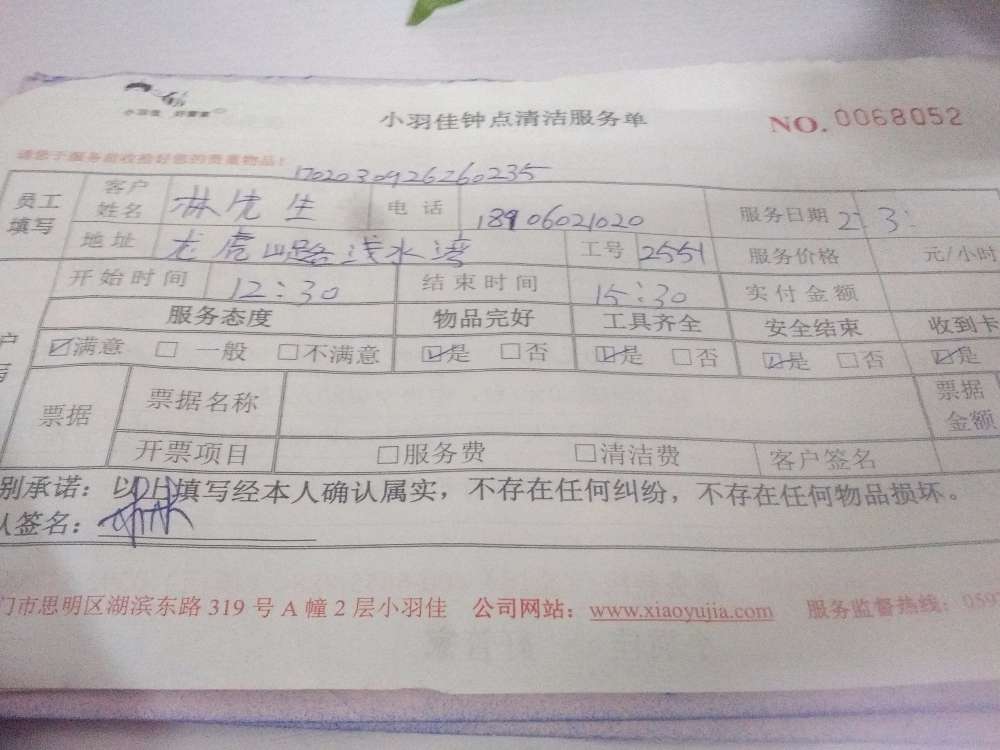 小羽佳 好管家
小羽佳钟点清洁服务单
NO. 0068052
请您于服务前收拾好您的贵重物品!
1702030926260235
员工填写 客户姓名 林先生 电话 18906021020 服务日期 2: 3:
地址 龙虎山路浅水湾 工号 2551 服务价格 元/小时
开始时间 12:30 结束时间 15:30 实付金额
服务态度 物品完好 工具齐全 安全结束 收到卡
☑满意 □一般 □不满意 ☑是 □否 ☑是 □否 ☑是 □否 ☑是
票据 票据名称 票据金额
开票项目 □服务费 □清洁费 客户签名
别承诺：以上填写经本人确认属实，不存在任何纠纷，不存在任何物品损坏。
人签名：林
门市思明区湖滨东路 319 号 A 幢 2 层小羽佳 公司网站：www.xiaoyujia.com 服务监督热线：059